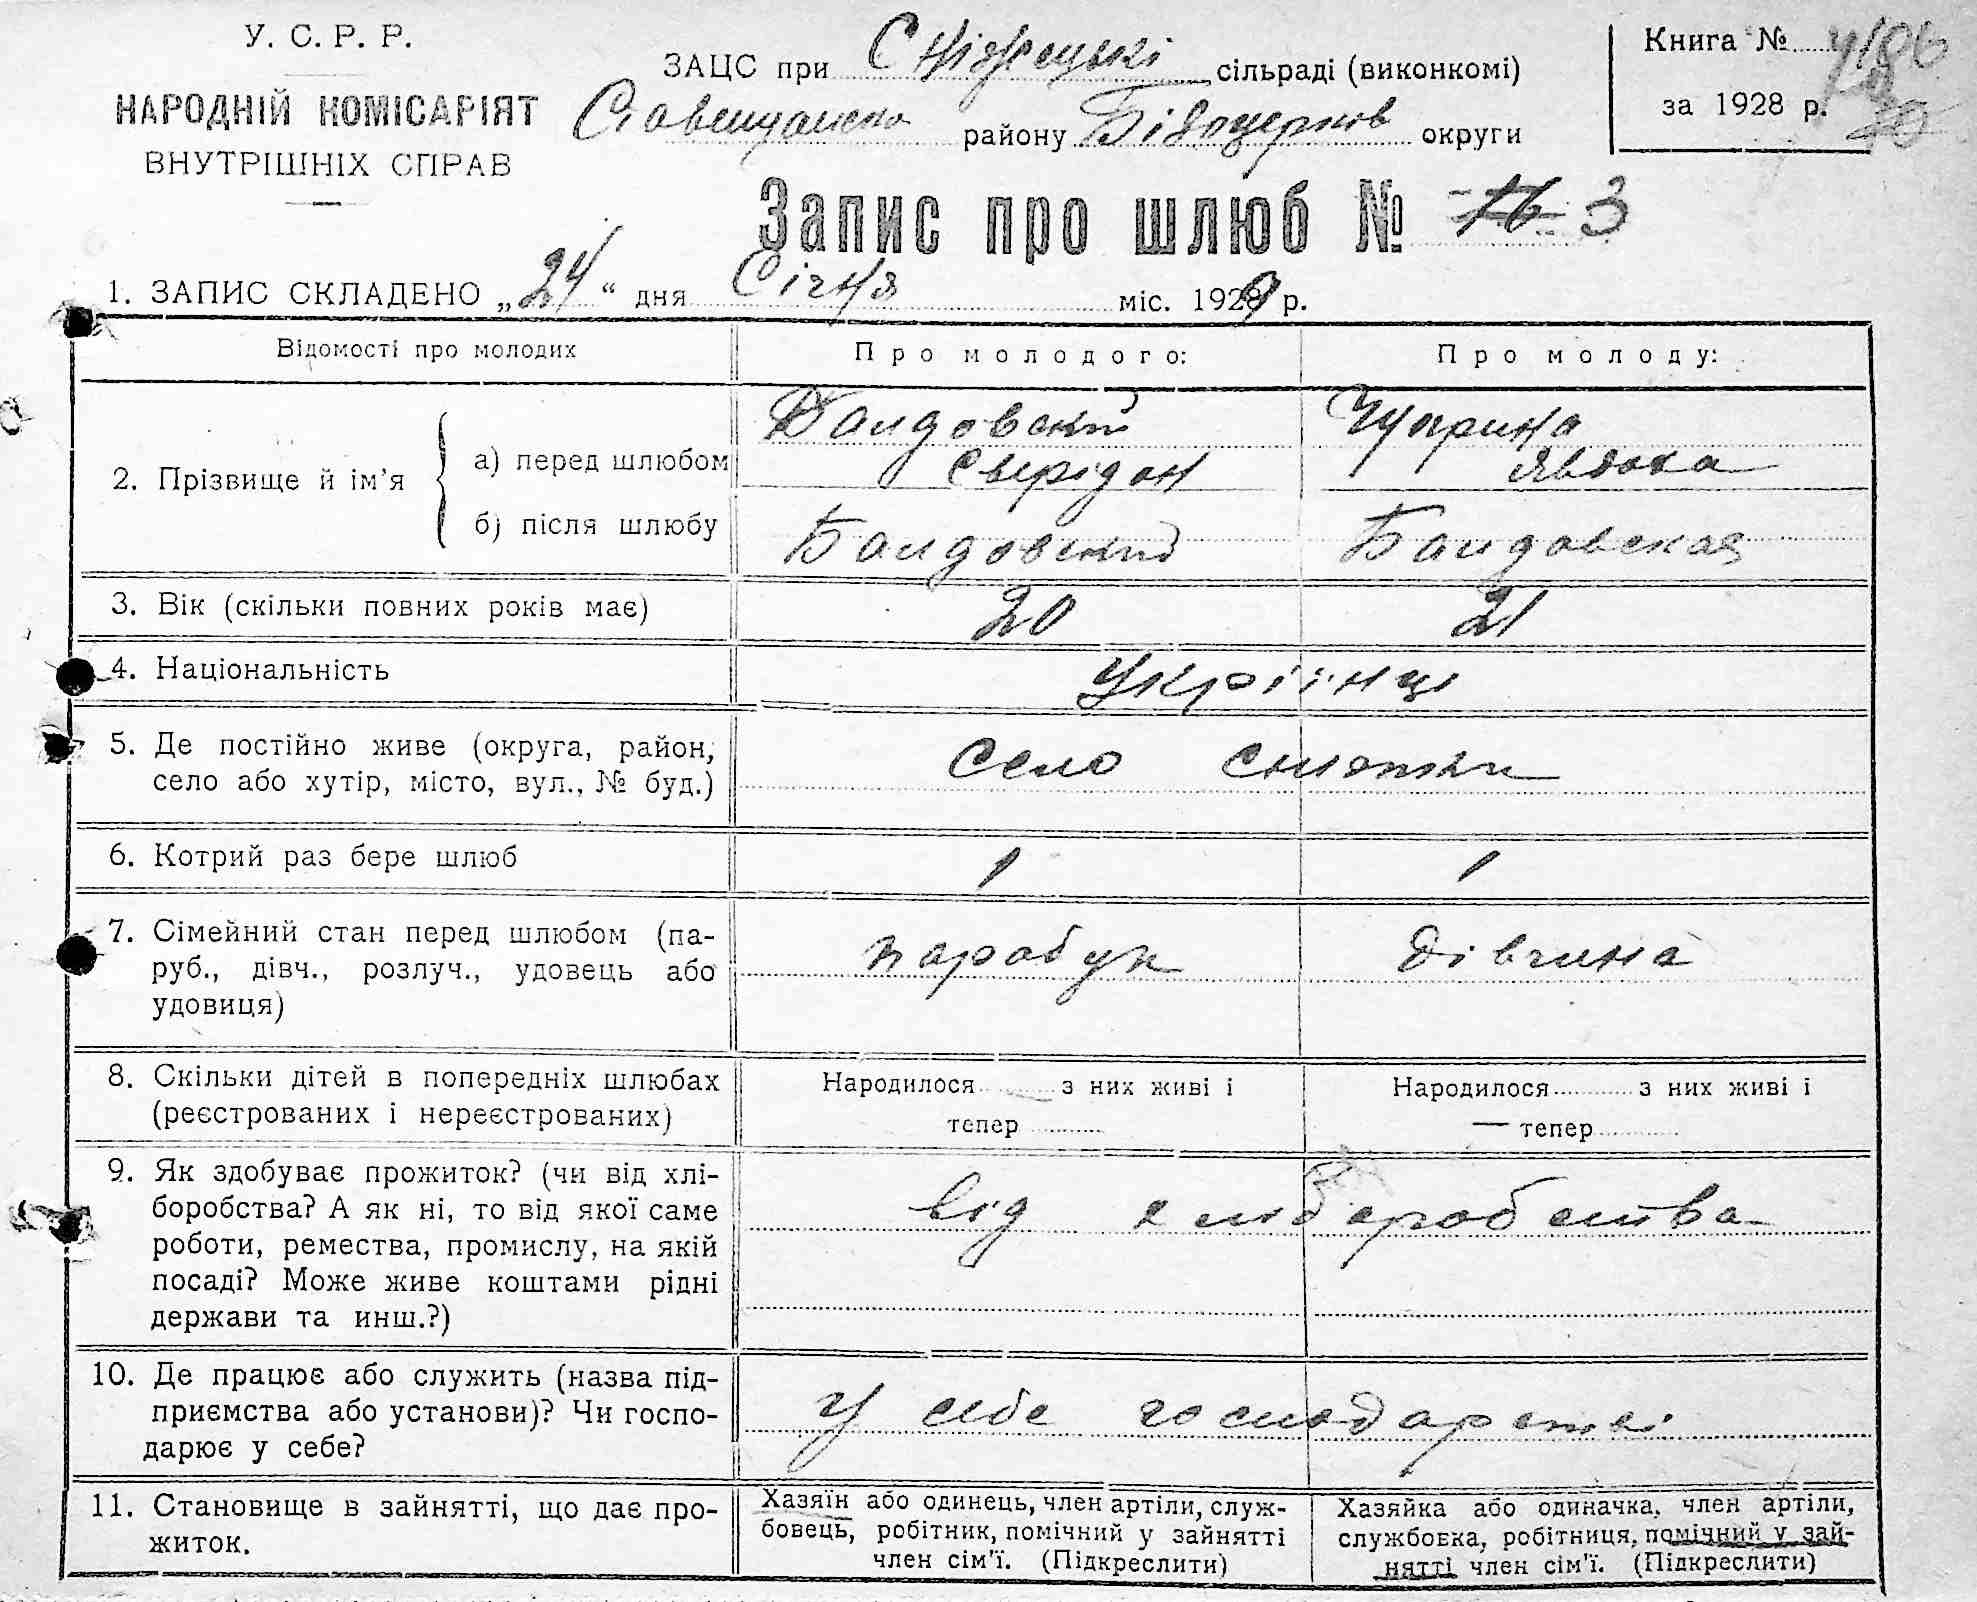 У. С. Р. Р.
НАРОДНІЙ КОМІСАРІЯТ
ВНУТРІШНІХ СПРАВ
ЗАЦС при сільраді (виконкомі)
району Білоцерков округи
Книга №
за 1928 р.
Запис про шлюб № 16 3
1. ЗАПИС СКЛАДЕНО „24“ дня Січня міс. 1929 р.
Відомості про молодих
Про молодого:
Про молоду:
2. Прізвище й ім'я
а) перед шлюбом
Балдовский
Сверідон
Чуприна
Явдоха
б) після шлюбу
Балдовский
Балдовская
3. Вік (скільки повних років має)
20
21
4. Національність
Укріїнці
5. Де постійно живе (округа, район, село
село або хутір, місто, вул., № буд.)
6. Котрий раз бере шлюб
1
1
7. Сімейний стан перед шлюбом (па-
руб., дівч., розлуч., удовець або
удовиця)
парабук
дівчина
8. Скільки дітей в попередніх шлюбах
(реєстрованих і нереєстрованих)
Народилося з них живі і
тепер
Народилося з них живі і
— тепер
9. Як здобуває прожиток? (чи від хлі-
боробства? А як ні, то від якої саме
роботи, ремества, промислу, на якій
посаді? Може живе коштами рідні
держави та инш.?)
від хлібаробства
10. Де працює або служить (назва під-
приємства або установи)? Чи госпо-
дарює у себе?
у себе господарстві
11. Становище в зайнятті, що дає про-
житок.
Хазяїн або одинець, член артіли, служ-
бовець, робітник, помічний у зайнятті
член сім'ї. (Підкреслити)
Хазяйка або одиначка, член артіли,
службовка, робітниця, помічний у зай-
нятті член сім'ї. (Підкреслити)